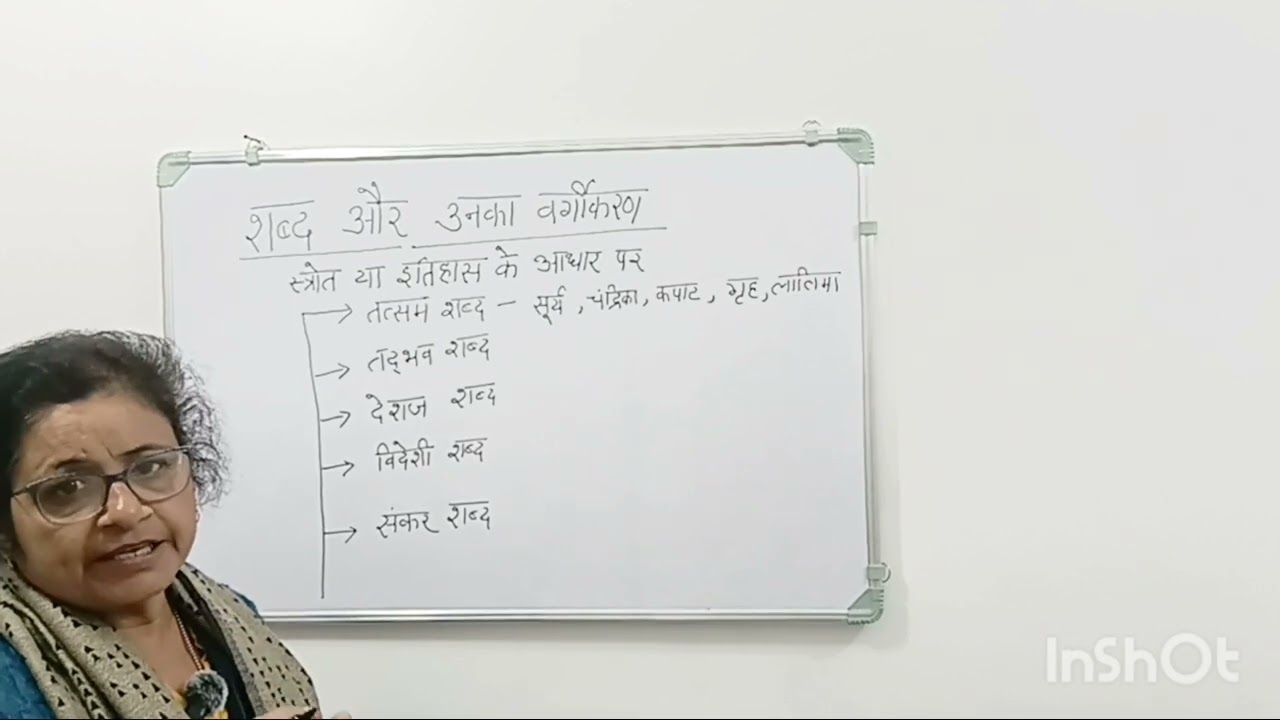 शब्द और उनका वर्गीकरण
स्त्रोत या इतिहास के आधार पर
तत्सम शब्द - सूर्य, चंद्रिका, कपाट, गृह, लालिमा
तद्भव शब्द
देशज शब्द
विदेशी शब्द
संकर शब्द
InShOt